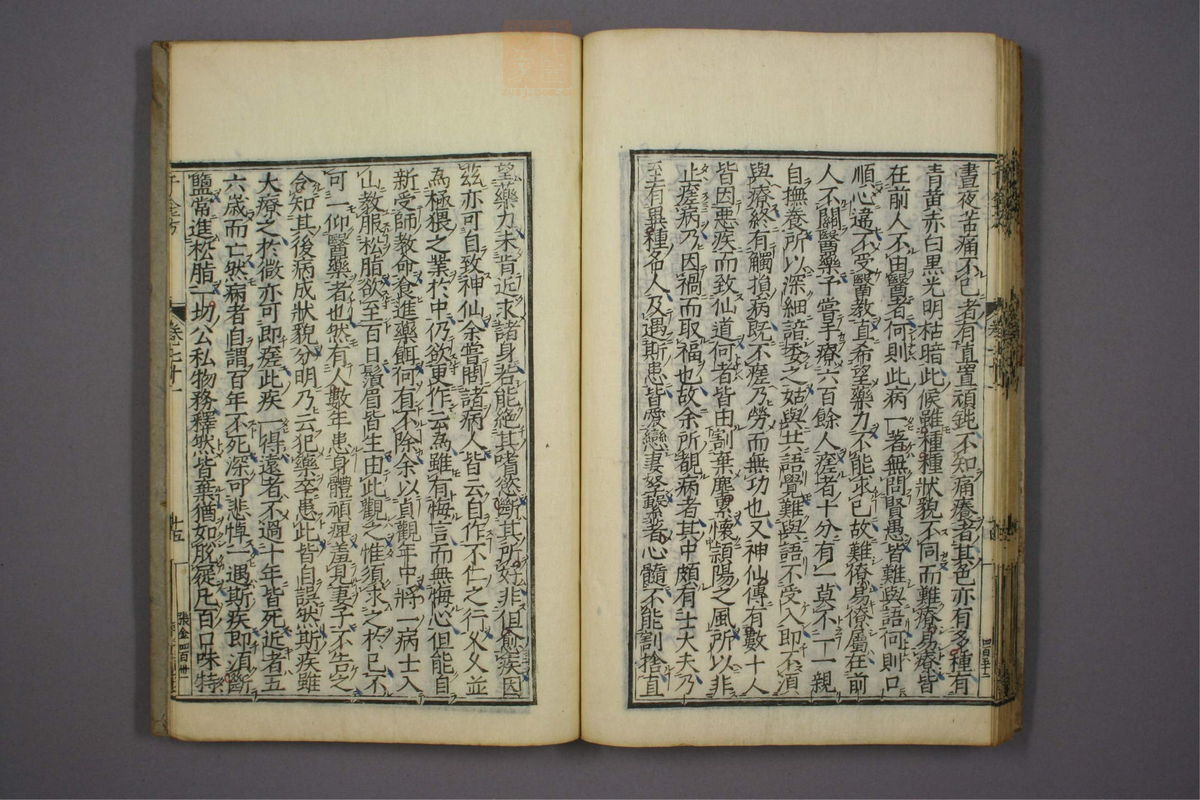 晝夜苦痛不已者有直置頑鈍不知痛癢者其色亦有多種有
青黄赤白黒光明枯暗此候雖種種狀貌不同而難療易療皆
在前人不由醫者何則此病一著無問賢愚皆難與語何則口
順心違不受醫教直希望藥力不能求己故難療易療屬在前
人不關醫藥予嘗手療六百餘人瘥者十分有一莫不一一親
自撫養所以深細諳委之姑與共語覺難與語不受入即不須
與療終有觸損病既不瘥乃勞而無功也又神仙傳有數十人
皆因惡疾而致仙道何者皆由割棄塵累懷頴陽之風所以非
止瘥病乃因禍而取福也故余所覩病者其中頗有士大夫乃
至有異種名人及遇斯患皆愛戀妻孥繫著心髓不能割捨直
望藥力未肯近求諸身若能絶其嗜慾斷其所好非但愈疾因
兹亦可自致神仙余嘗問諸病人皆云自作不仁之行久久並
為極猥之業於中仍欲更作云為雖有悔言而無悔心但能自
新受師教命食進藥餌何有不除余以貞觀年中將一病士入
山教服松脂欲至百日鬚眉皆生由此觀之惟須求之於己不
可一仰醫藥者也然有人數年患身體頑痺羞見妻子不告之
令知其後病成狀貌分明乃云犯藥卒患此皆自誤然斯疾雖
大療之於微亦可即瘥此疾一得遠者不過十年皆死近者五
六歳而亡然病者自謂百年不死深可悲悼一遇斯疾即須斷
鹽常進松脂一切公私物務釋然皆棄猶如脫屣凡百口味特
卷七十一
十五
張金四百卅
四百五十二